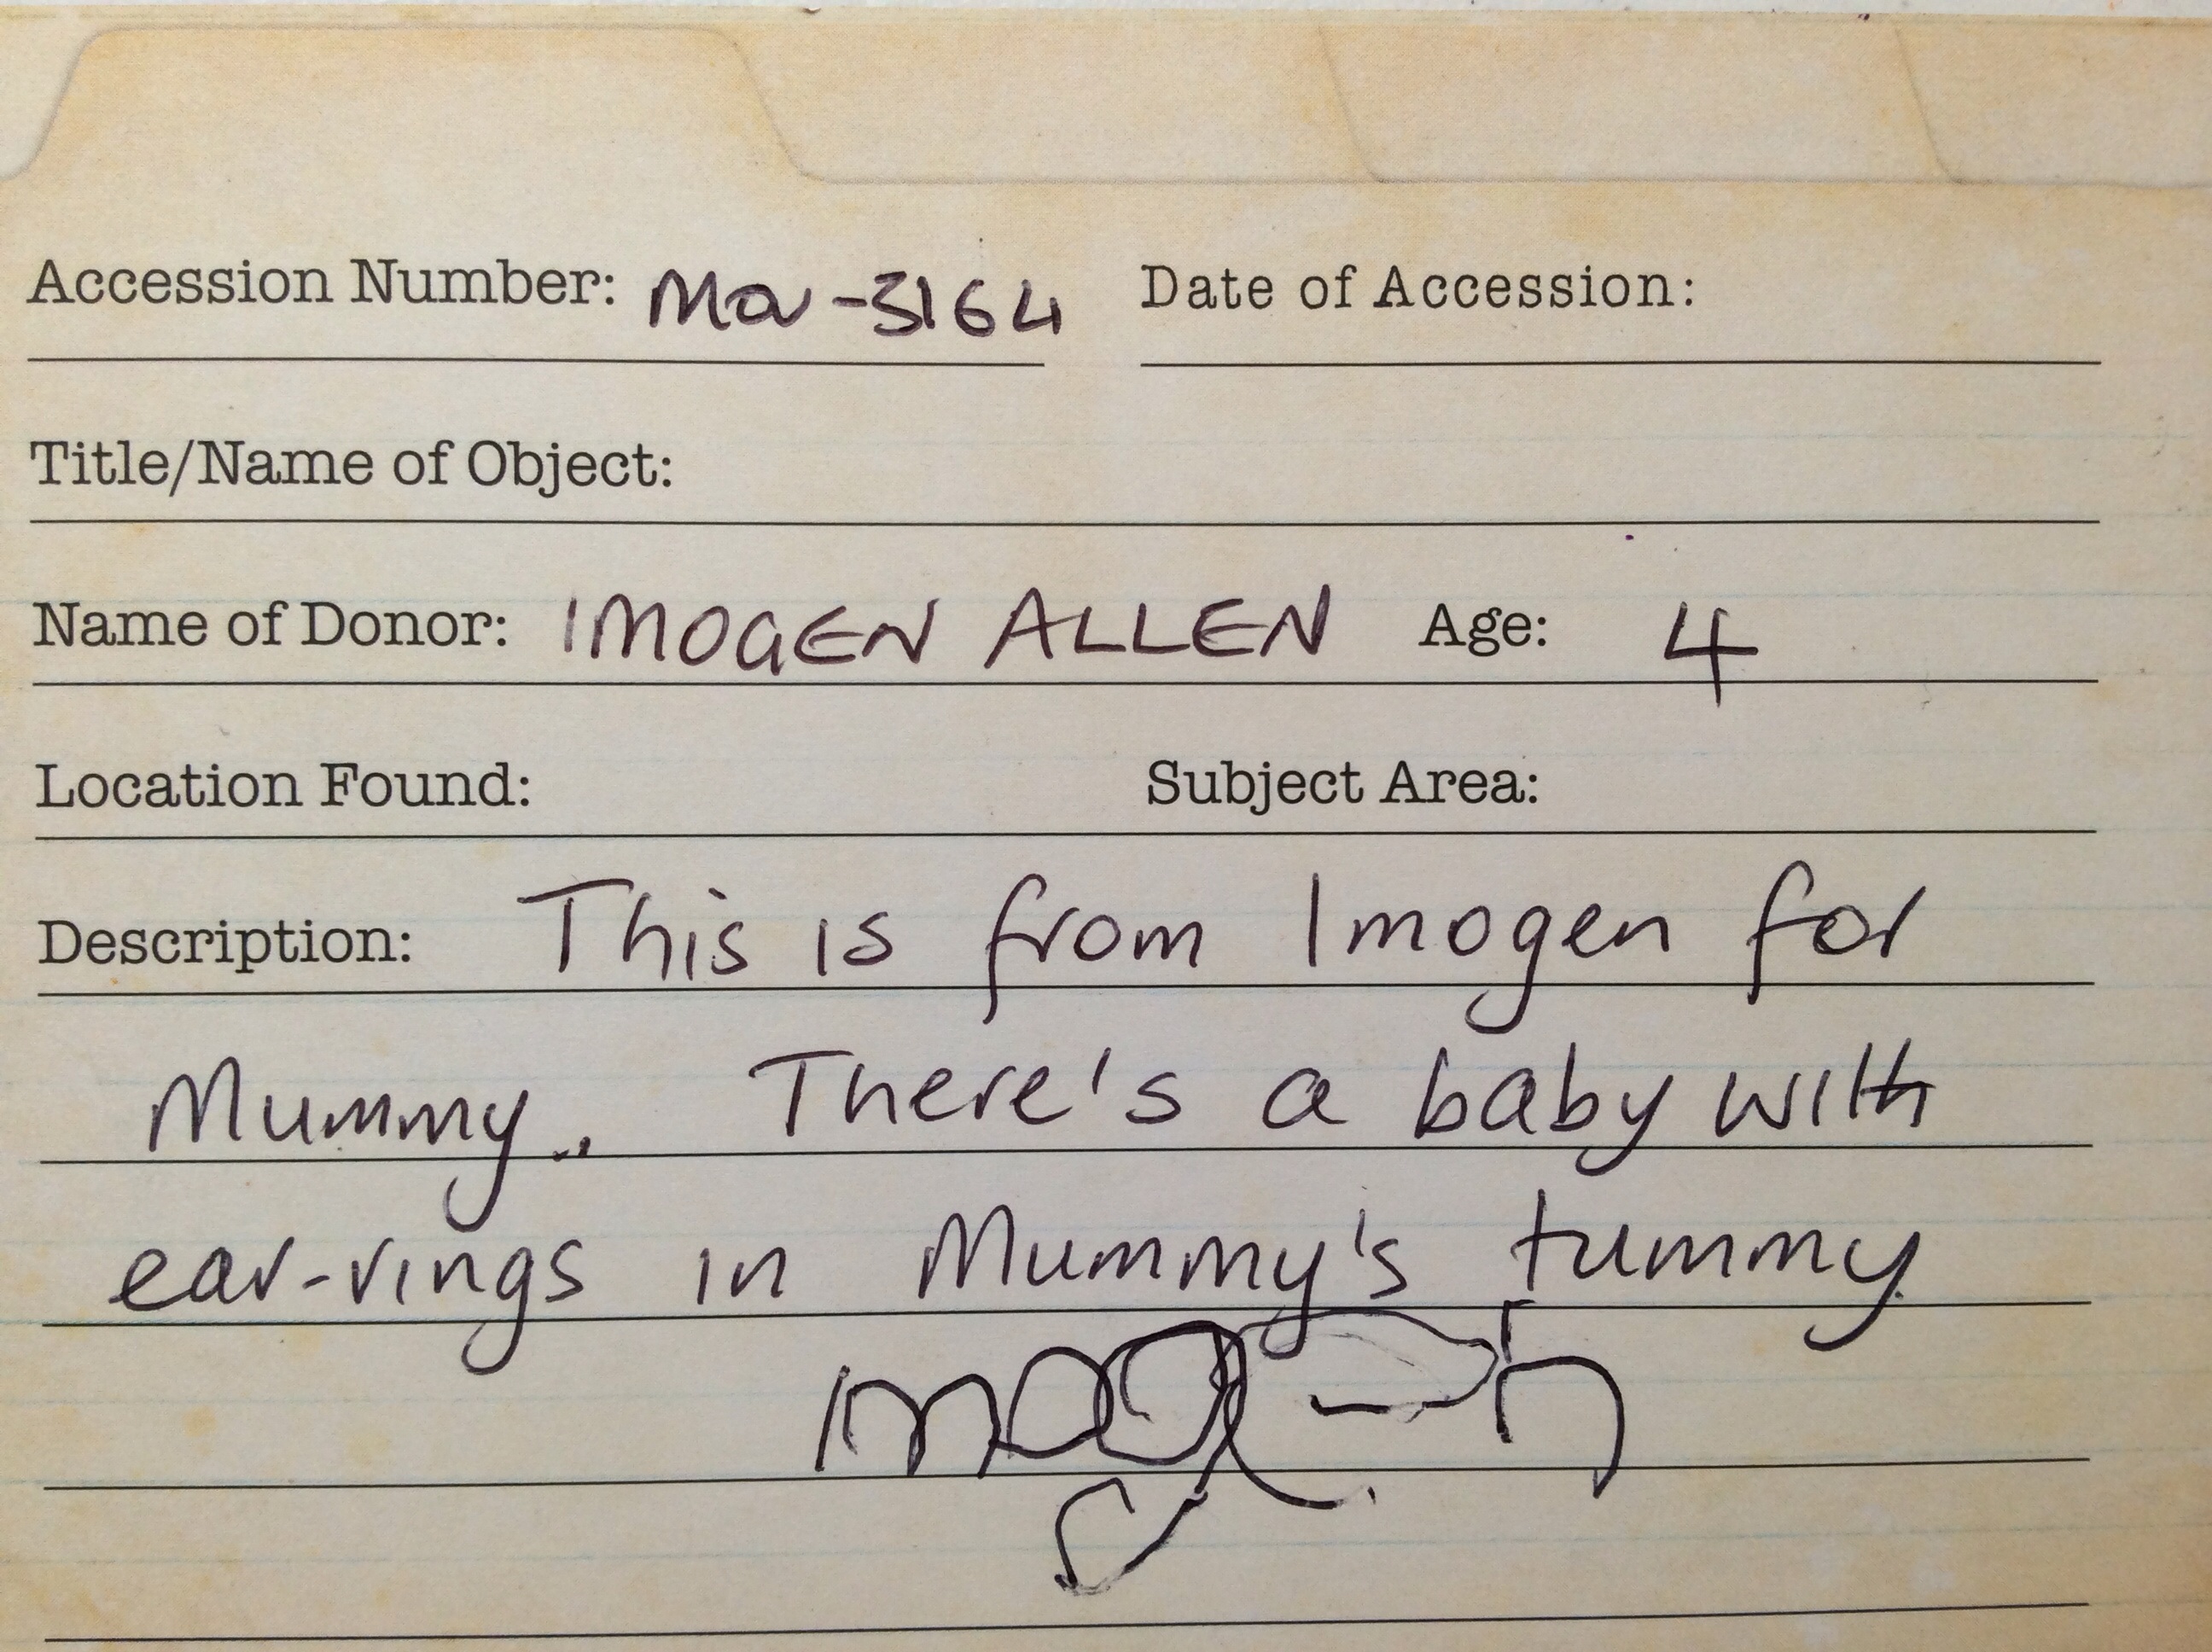 Accession Number: Mar-3164 Date of Accession:
Title/Name of Object:
Name of Donor: IMOGEN ALLEN Age: 4
Location Found: Subject Area:
Description: This is from Imogen for
Mummy.. There's a baby with
ear-rings in Mummy's tummy.
Imogen